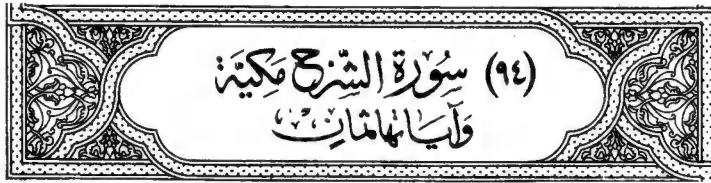 (٩٤) سُورَةِ الشَّرْحِ مَكِيَّة
وَآيَاتُهَا ثَمَانٍ